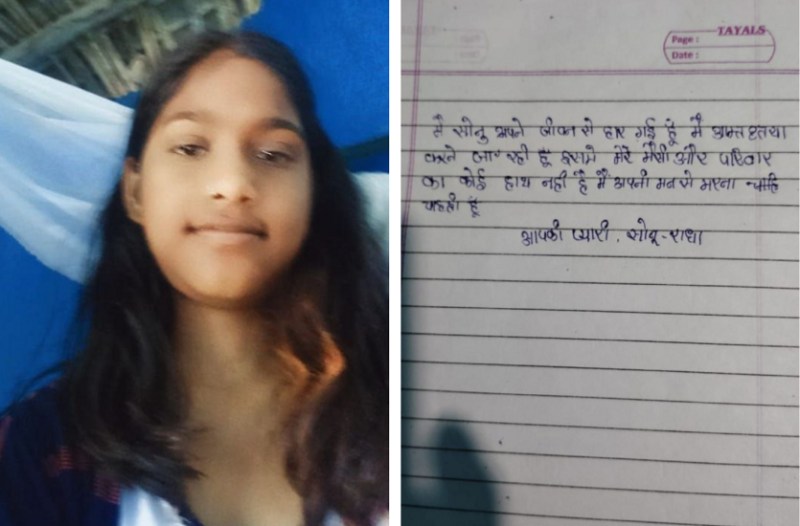 TAYALS
Page :
Date :
मै सोनु अपने जीवन से हार गई हूँ मै आत्म हतया
करने जा रही हूँ इसमे मेरे मैसी और परिवार
का कोई हाथ नही है मै अपनी मन से मरना चाहि
चाहती हूँ
आपकी प्यारी . सोनू - राधा